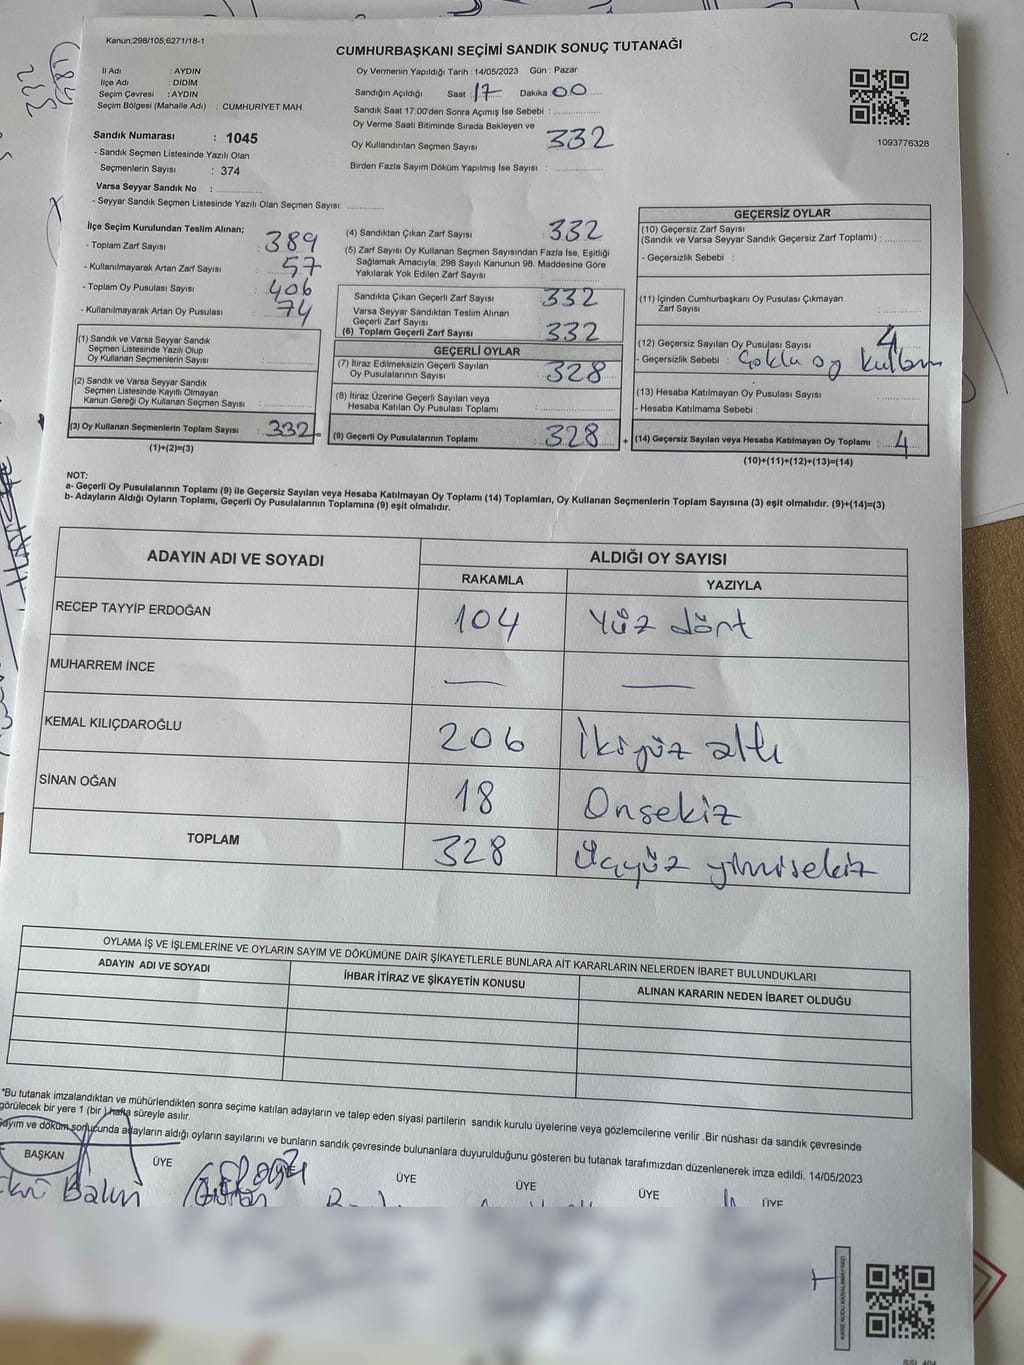 Kanun;298/105;6271/18-1
C/2
CUMHURBAŞKANI SEÇİMİ SANDIK SONUÇ TUTANAĞI
İl Adı : AYDIN
İlçe Adı : DİDİM
Seçim Çevresi : AYDIN
Seçim Bölgesi (Mahalle Adı) : CUMHURİYET MAH.
Sandık Numarası : 1045
- Sandık Seçmen Listesinde Yazılı Olan
Seçmenlerin Sayısı : 374
Varsa Seyyar Sandık No :
- Seyyar Sandık Seçmen Listesinde Yazılı Olan Seçmen Sayısı:
Oy Vermenin Yapıldığı Tarih : 14/05/2023 Gün : Pazar
Sandığın Açıldığı Saat : 17 Dakika : 00
Sandık Saat 17:00'den Sonra Açımış İse Sebebi :
Oy Verme Saati Bitiminde Sırada Bekleyen ve
Oy Kullandırılan Seçmen Sayısı 332
Birden Fazla Sayım Döküm Yapılmış İse Sayısı :
1093776328
İlçe Seçim Kurulundan Teslim Alınan;
- Toplam Zarf Sayısı : 389
- Kullanılmayarak Artan Zarf Sayısı : 57
- Toplam Oy Pusulası Sayısı : 406
- Kullanılmayarak Artan Oy Pusulası : 74
(1) Sandık ve Varsa Seyyar Sandık
Seçmen Listesinde Yazılı Olup
Oy Kullanan Seçmenlerin Sayısı :
(2) Sandık ve Varsa Seyyar Sandık
Seçmen Listesinde Kayıtlı Olmayan
Kanun Gereği Oy Kullanan Seçmen Sayısı :
(3) Oy Kullanan Seçmenlerin Toplam Sayısı : 332
(1)+(2)=(3)
(4) Sandıktan Çıkan Zarf Sayısı : 332
(5) Zarf Sayısı Oy Kullanan Seçmen Sayısından Fazla İse, Eşitliği
Sağlamak Amacıyla; 298 Sayılı Kanunun 98. Maddesine Göre
Yakılarak Yok Edilen Zarf Sayısı :
Sandıkta Çıkan Geçerli Zarf Sayısı : 332
Varsa Seyyar Sandıktan Teslim Alınan
Geçerli Zarf Sayısı :
(6) Toplam Geçerli Zarf Sayısı : 332
GEÇERLİ OYLAR
(7) İtiraz Edilmeksizin Geçerli Sayılan
Oy Pusulalarının Sayısı : 328
(8) İtiraz Üzerine Geçerli Sayılan veya
Hesaba Katılan Oy Pusulası Toplamı :
(9) Geçerli Oy Pusulalarının Toplamı : 328 +
GEÇERSİZ OYLAR
(10) Geçersiz Zarf Sayısı
(Sandık ve Varsa Seyyar Sandık Geçersiz Zarf Toplamı) :
- Geçersizlik Sebebi :
(11) İçinden Cumhurbaşkanı Oy Pusulası Çıkmayan
Zarf Sayısı :
(12) Geçersiz Sayılan Oy Pusulası Sayısı : 4
- Geçersizlik Sebebi : Çoklu oy kullanım
(13) Hesaba Katılmayan Oy Pusulası Sayısı :
- Hesaba Katılmama Sebebi :
(14) Geçersiz Sayılan veya Hesaba Katılmayan Oy Toplamı : 4
(10)+(11)+(12)+(13)=(14)
NOT:
a- Geçerli Oy Pusulalarının Toplamı (9) ile Geçersiz Sayılan veya Hesaba Katılmayan Oy Toplamı (14) Toplamları, Oy Kullanan Seçmenlerin Toplam Sayısına (3) eşit olmalıdır. (9)+(14)=(3)
b- Adayların Aldığı Oyların Toplamı, Geçerli Oy Pusulalarının Toplamına (9) eşit olmalıdır.
ADAYIN ADI VE SOYADI ALDIĞI OY SAYISI
RAKAMLA YAZIYLA
RECEP TAYYİP ERDOĞAN 104 Yüz dört
MUHARREM İNCE — —
KEMAL KILIÇDAROĞLU 206 İkiyüz altı
SİNAN OĞAN 18 Onsekiz
TOPLAM 328 Üçyüz yirmisekiz
OYLAMA İŞ VE İŞLEMLERİNE VE OYLARIN SAYIM VE DÖKÜMÜNE DAİR ŞİKAYETLERLE BUNLARA AİT KARARLARIN NELERDEN İBARET BULUNDUKLARI
ADAYIN ADI VE SOYADI İHBAR İTİRAZ VE ŞİKAYETİN KONUSU ALINAN KARARIN NEDEN İBARET OLDUĞU
*Bu tutanak imzalandıktan ve mühürlendikten sonra seçime katılan adayların ve talep eden siyasi partilerin sandık kurulu üyelerine veya gözlemcilerine verilir .Bir nüshası da sandık çevresinde
görülecek bir yere 1 (bir ) hafta süreyle asılır.
Sayım ve döküm sonucunda adayların aldığı oyların sayılarını ve bunların sandık çevresinde bulunanlara duyurulduğunu gösteren bu tutanak tarafımızdan düzenlenerek imza edildi. 14/05/2023
BAŞKAN ÜYE ÜYE ÜYE ÜYE ÜYE
KARE KODU KARALAMAYINIZ!